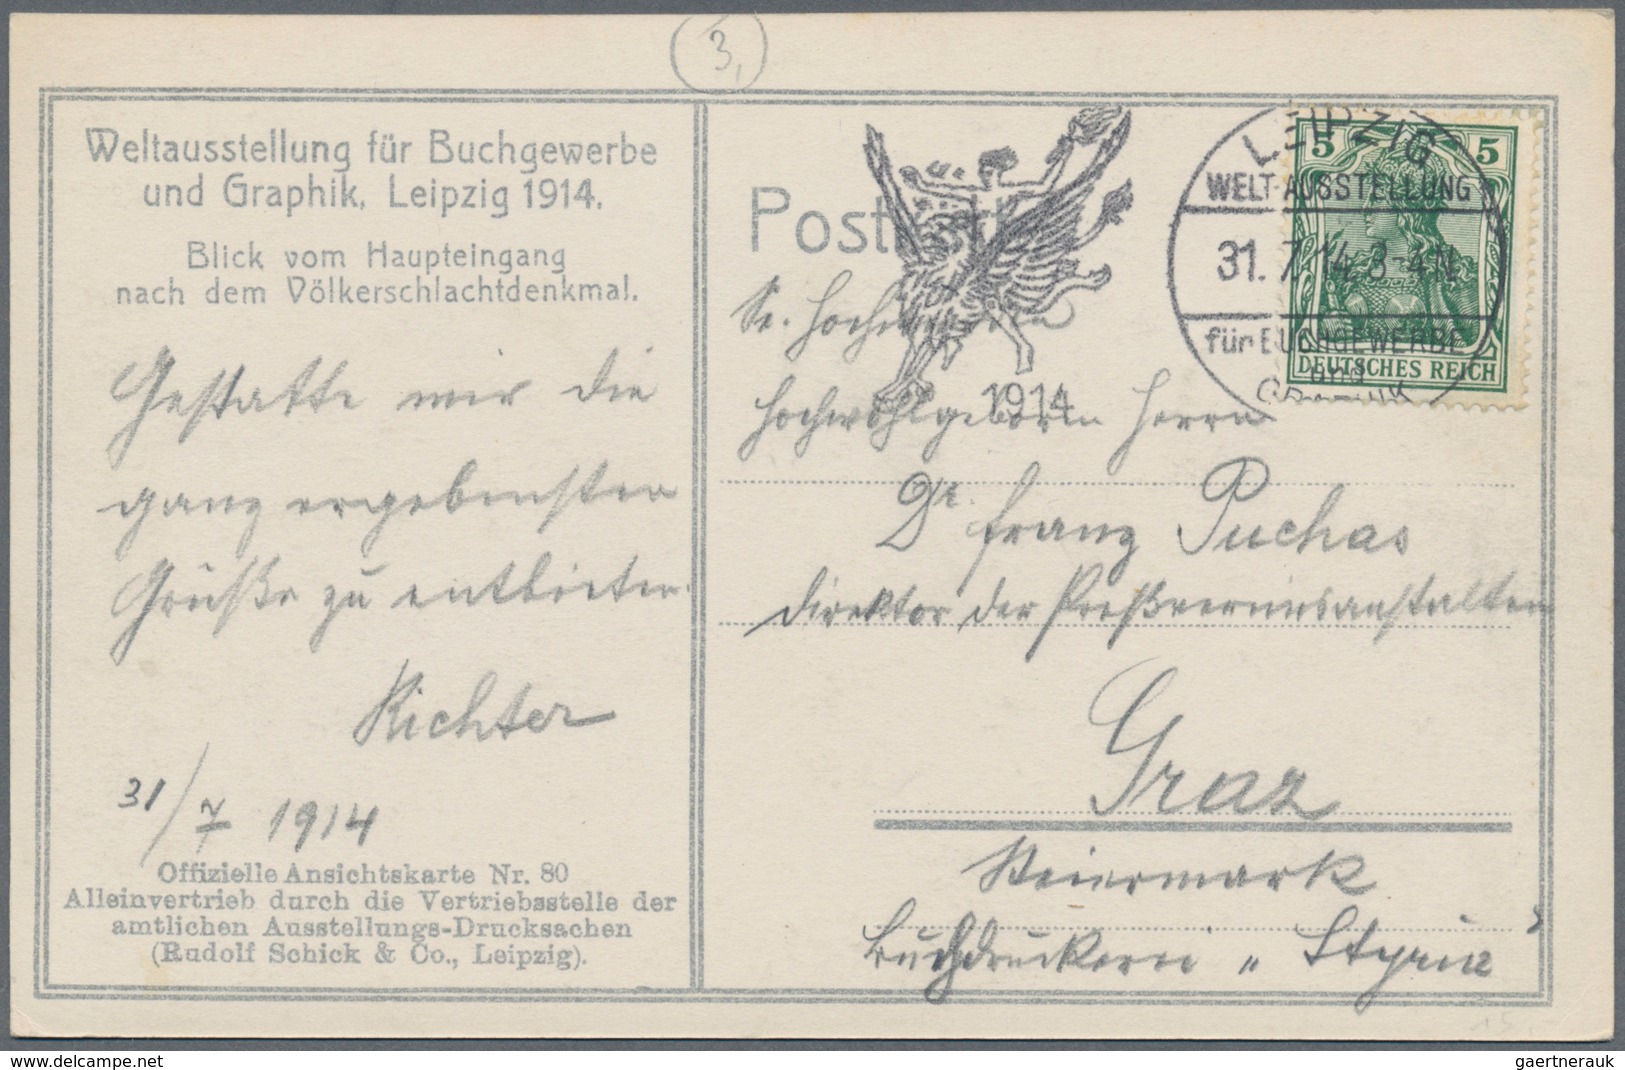 3,
Weltausstellung für Buchgewerbe
und Graphik, Leipzig 1914.
Blick vom Haupteingang
nach dem Völkerschlachtdenkmal.
Gestatte mir die
ganz ergebensten
Grüße zu entbieten.
Richter
31/7 1914
Offizielle Ansichtskarte Nr. 80
Alleinvertrieb durch die Vertriebsstelle der
amtlichen Ausstellungs-Drucksachen
(Rudolf Schick & Co., Leipzig).
1914
LEIPZIG
WELT-AUSSTELLUNG
31.7.14.3-4N.
für BUCHGEWERBE
und
GRAPHIK
5 5
DEUTSCHES REICH
Sr. Hochwürden
Hochwohlgeboren Herrn
Dr. Franz Puchas
Direktor der Preßvereinsanstalten
Graz
Steiermark
Buchdruckerei „Styria"
the-philatelist.com
gaertnerauk